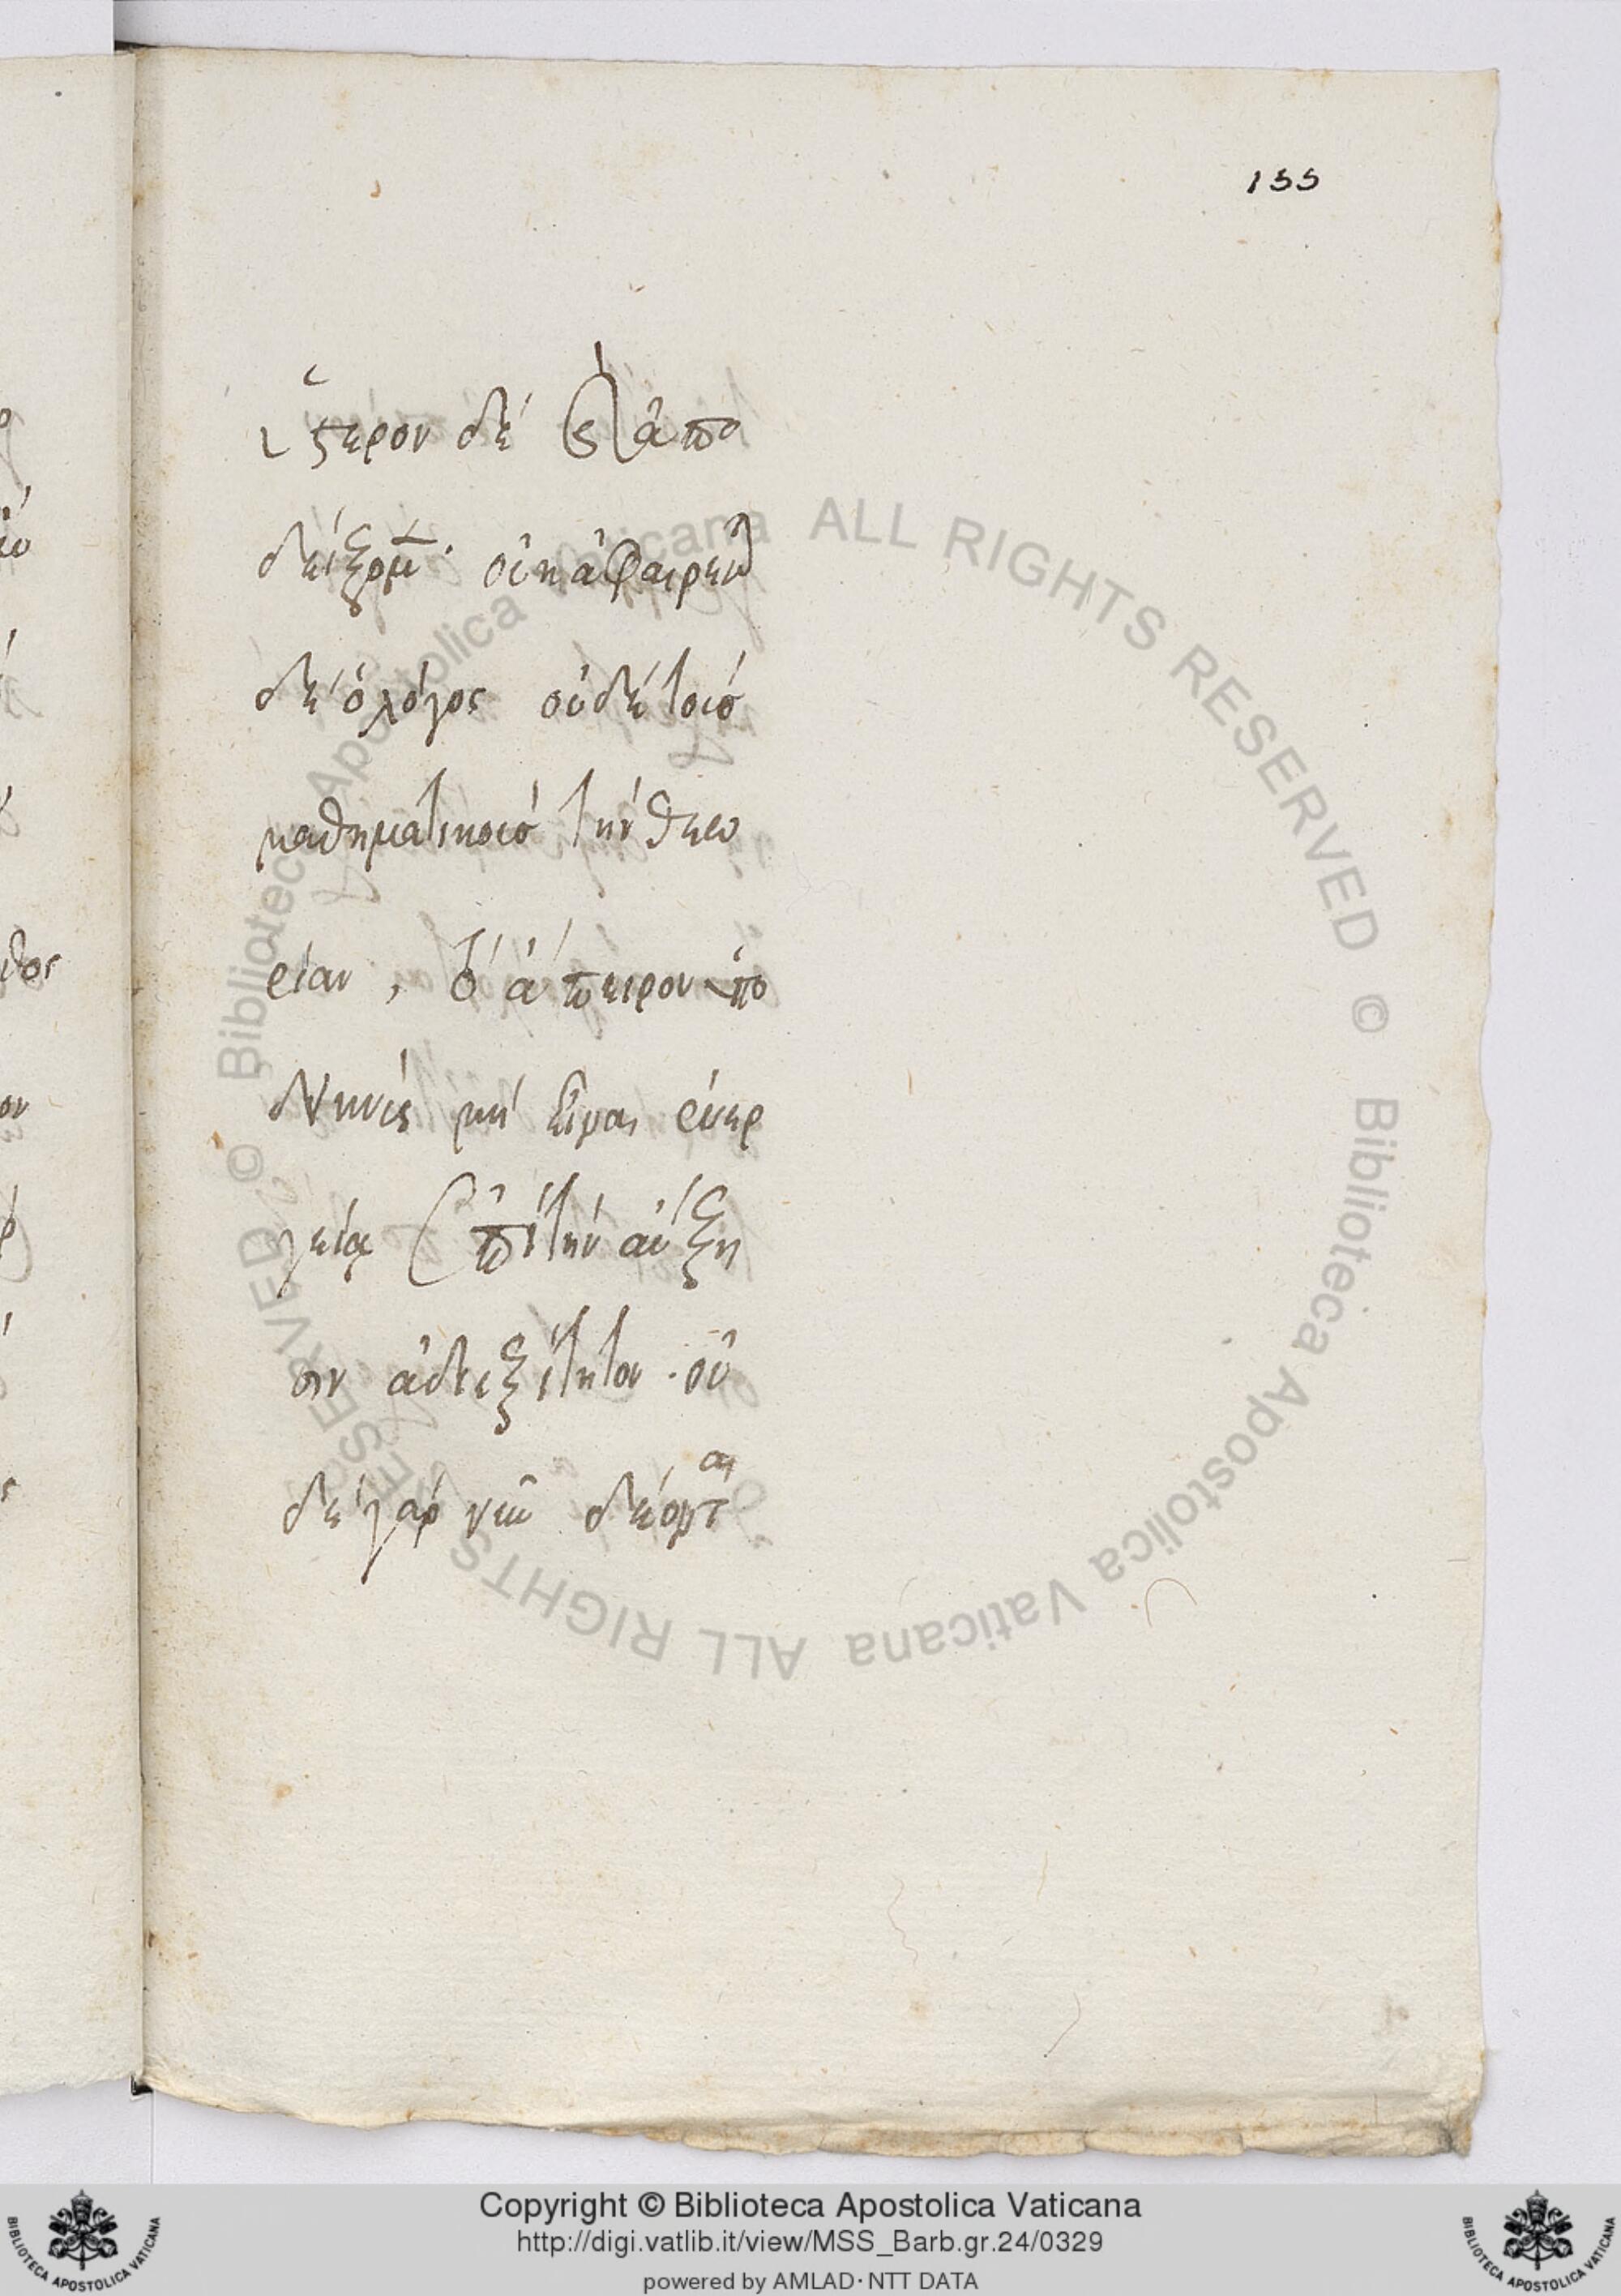 155
ὕστερον δὲ ἀπο
δείξομεν· οὐκ ἀφαιρεῖ
δὲ ὁ λόγος οὐδὲ τοὺς
μαθηματικοὺς τὴν θεω
ρίαν, τὸ ἄπειρον
μὴ εἶναι ἐνερ
γείᾳ ἐπὶ τὴν αὔξη
σιν ἀδιεξίτητον· οὐ
δὲ γὰρ νῦν δέονται
© Biblioteca Apostolica Vaticana ALL RIGHTS RESERVED © Biblioteca Apostolica Vaticana ALL RIGHTS RESERVED
Copyright © Biblioteca Apostolica Vaticana
http://digi.vatlib.it/view/MSS_Barb.gr.24/0329
powered by AMLAD·NTT DATA
BIBLIOTECA APOSTOLICA VATICANA
BIBLIOTECA APOSTOLICA VATICANA